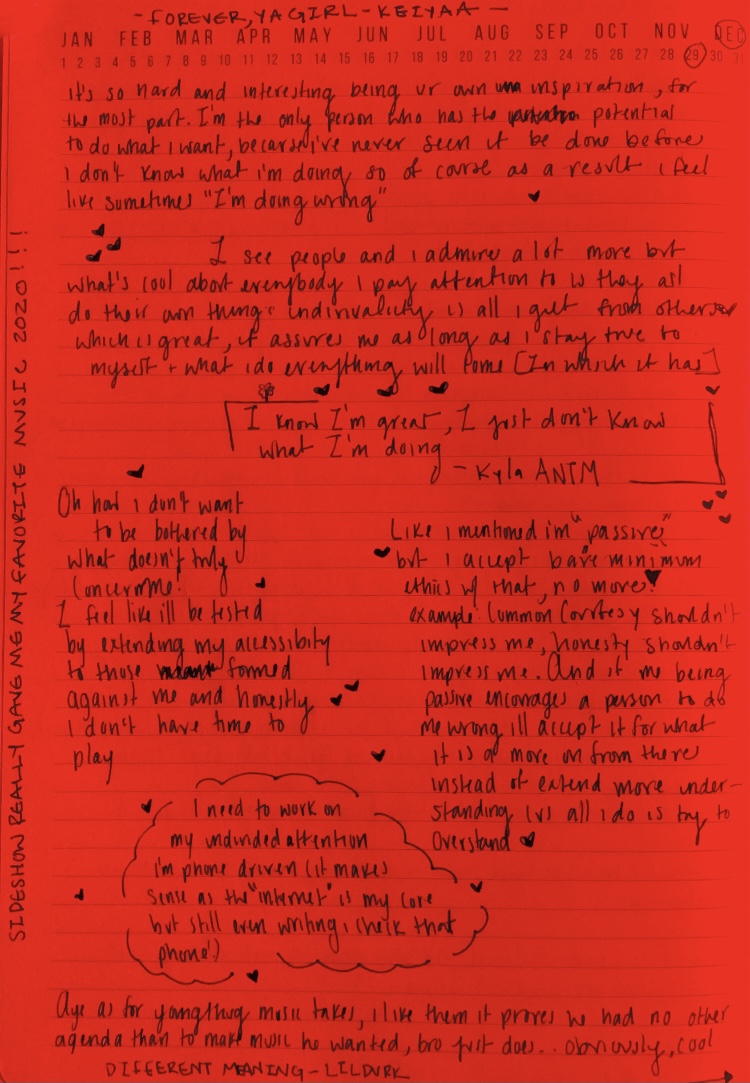 - FOREVER, YA GIRL - KEIYAA -
JAN FEB MAR APR MAY JUN JUL AUG SEP OCT NOV DEC
1 2 3 4 5 6 7 8 9 10 11 12 13 14 15 16 17 18 19 20 21 22 23 24 25 26 27 28 29 30 31
it's so hard and interesting being ur own inspiration, for
the most part. I'm the only person who has the potential
to do what i want, because i've never seen it be done before
I don't know what i'm doing so of course as a result i feel
like sometimes "I'm doing wrong"
I see people and i admire a lot more but
what's cool about everybody I pay attention to is they all
do their own thing. indivuality is all I get from others
which is great, it assures me as long as i stay true to
myself + what i do everything will come [In which it has]
I know I'm great, I just don't know
what I'm doing
- Kyla ANTM
Oh how i don't want
to be bothered by
what doesn't truly
concern me.
I feel like ill be tested
by extending my accessibity
to those formed
against me and honestly
I don't have time to
play
Like i mentioned i'm "passive"
but i accept bare minimum
ethics w/ that, no more!
example: Common Courtesy shouldn't
impress me, honesty shouldn't
impress me. And if me being
passive encourages a person to do
me wrong ill accept it for what
it is a move on from there
instead of extend more under-
standing cvs all i do is try to
Overstand
I need to work on
my undivided attention
i'm phone driven (it makes
sense as the "internet" is my core
but still even writing i check that
phone!)
Aye as for youngthug music takes, i like them it proves he had no other
agenda than to make music he wanted, bro just does.. obviously, cool
DIFFERENT MEANING - LILDURK
SIDESHOW REALLY GAVE ME MY FAVORITE MUSIC 2020!!!